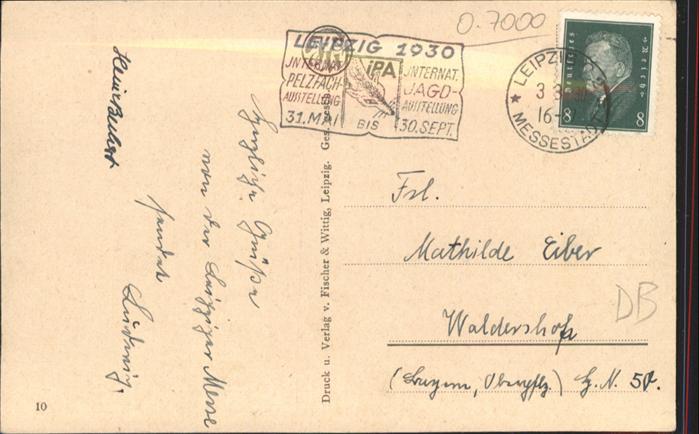 O-7000
LEIPZIG 1930
INTERNAT. IPA INTERNAT.
PELZFACH- JAGD-
AUSSTELLUNG AUSSTELLUNG
31. MAI BIS 30. SEPT.
LEIPZIG
16-
MESSESTADT
Deutsches Reich
8 8
Herzliche Grüße
von der Leipziger Messe
sendet
Ludwig.
Druck u. Verlag v. Fischer & Wittig, Leipzig. Ges. gesch.
Frl.
Mathilde Eiber
Waldershof
(Bayern, Oberpflz.) H. N. 50.
DB
10